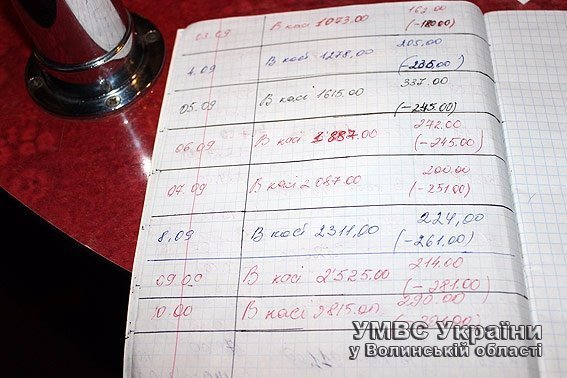 03.09 В касі 1073.00 162.00
(-180.00)
4.09 В касі 1278,00 205,00
(-235.00)
05.09 В касі 1615.00 337.00
(-245.00)
06.09 В касі 1887.00 272.00
(-245.00)
07.09 В касі 2087.00 200.00
(-251.00)
8.09 В касі 2311,00 224,00
(-261.00)
09.00 В касі 2525.00 214.00
(-281.00)
10.00 В касі 2815.00 290.00
УМВС України
у Волинській області